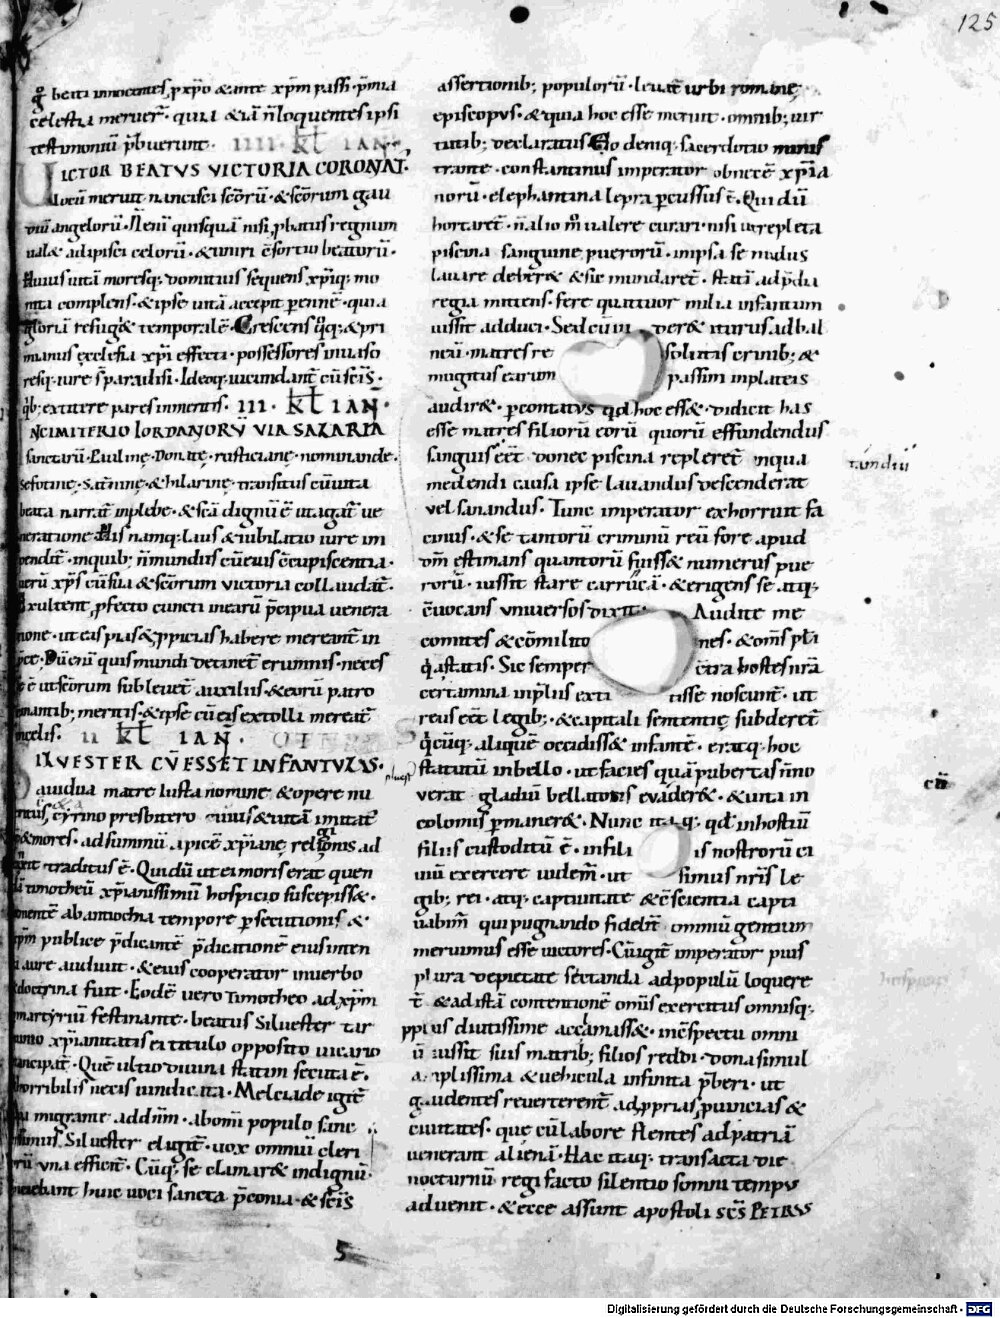 125
g° beati innocentes, ꝓ xp̄o & ante xp̄m passi · p̄mia
celestia meruer̄ · quia & iā n̄ loquentes ipsi
testimoniū p̄buerunt · IIII · KL̄ IAN̄ ·
VICTOR BEATVS VICTORIA CORONAT̄ ·
locū meruit nancisci sc̄orū · & sc̄orum gau
diū angelorū · Nenū quisquā nisi ꝓbatus regnum
ualet adipisci celorū · & uniri c̄sortio beatorū ·
Huius uitā moresq; domitius sequens xp̄iq; mo
nita complens · & ipse uitā accepit ꝑennē · quia
gloriā refugit temporalē · Crescens q̄q; & pri
mianus ęcclesia xp̄i effecti · possessores inuiso
resq; iure s̄ paradisi · Ideoq; iucundant̄ cū sc̄is ·
q̄b; extitere pares in meritis · III · KL̄ IAN̄ ·
N CIMITERIO IORDANORV̄ VIA SALARIA
sanctarū · Paulinę · Donatę · rusticianę · nominande ·
Sefotinę · Satn̄inę · & hilarinę · transitus cū uita
beata narrat̄ in plebe · & sc̄a dignū ē ut agat̄ ue
neratione · His namq; laus & iubilatio iure im
pendit̄ · in quib; n̄ mundus cū eius c̄cupiscentia ·
uerū xp̄s cū sua & sc̄orum uictoria collaudat̄ ·
Exultent ꝓfecto cuncti in earū p̄cipua uenera
tione · ut eas pias & ꝓpicias habere mereant̄ in
p̄ce · Dū enī quis mundi detinet̄ erumnis · neces
se ē ut sc̄orum subleuet̄ auxiliis · & eorū patro
cinantib; meritis · & ipse cū eis extolli mereat̄
in celis · II KL̄ IAN̄ ·
SILVESTER CV̄ ESSET INFANTVLVS ·
a uidua matre Iusta nomine & opere nu
tritus, cyrino presbitero cuius & uitā imitat̄
& mores · ad summū apicē xp̄ianę religionis ad
traditus ē · Qui dū ut ei moris erat quen
dā timotheū xp̄ianissimū hospicio suscepisset ·
uenientē ab antiochia tempore ꝑsecutionis &
xp̄m publice p̄dicantē p̄dicationē eius inten
ta aure audiuit · & eius cooperator in uerbo
& doctrina fuit · Eodē uero Timotheo ad xp̄m
martyriū festinante · beatus Siluester tar
xp̄ianitatis ei titulo opposito uicario
ancipat̄ · Quē ultio diuina statim secuta ē ·
horribilis necis uindicata · Melciade igit̄
migrante ad dn̄m · ab omī populo sanc
tissimus Siluester eligit̄ · uox omniū cleri
corū una efficit̄ · Cūq; se clamaret indignū ·
huic uoci sancta p̄conia · & sc̄is
5
assertionib; populorū · leuat̄ urbi romanę
episcopus · & quia hoc esse meruit · omnib; uir
tutib; declaratus · Eo deniq; sacerdotio minis
trante · constantinus imperator obn̄cē xp̄ia
norū · elephantina lepra ꝑcussus ē · Qui dū
hortaret̄ · n̄ alio m̄ ualere curari · nisi ut repleta
piscina sanguine puerorū · in ipsa se nudus
lauare deberet & sic mundaret̄ · statā ad p̄dia
regia mittens · fere quattuor milia infantum
iussit adduci · Sed cū in deret iturus ad bal
neū · matres re solutis crinib; &
mugitus earum passim in plateis
audiret · ꝑcontatus qd̄ hoc esset · didicit has
esse matres filiorū eorū quorū effundendus
sanguis eēt donec piscina repleret̄ in qua tūmdiū
medendi causa ipse lauandus descenderat
uel sanandus · Tunc imperator exhorruit fa
cinus · & se tantorū criminū reū fore apud
dm̄ estimans quantorū fuisset numerus pue
rorū · iussit stare carrucā · & erigens se atq;
c̄uocans uniuersos dixit · Audite me
comites & cōmilito nes · & om̄s ppl̄i
q̄ astatis · Sic semper c̄tra hostes nr̄a
certamina inpluis exti tisse noscunt̄ · ut
reus eēt legib; · & capitali sententię subderet̄
q̄cūq; aliquē occidisset infantē · eratq; hoc
statutū in bello · ut facies quā pubertas n̄ no
uerat gladiū bellatoris euaderet · & uita in
colomis ꝑmaneret · Nunc itaq; qd̄ in hostiū
filiis custoditū ē · in fili is nostrorū ci
uiū exercere uidem̄ · ut simus nr̄is le
gib; rei · atq; captiuitate & c̄scientia capti
uabim̄ qui pugnando fidelit̄ omniū gentium
meruimus esse uictores · Cūq; igit̄ imperator pius
plura de pietate sectanda ad populū loquere
t̄ · & adistā contentionē om̄is exercitus omnisq;
ppl̄us diutissime acclamasset · in c̄spectu omni
ū iussit suis matrib; filios reddi · dona simul
amplissima & uehicula infinita p̄beri · ut
gaudentes reuerterent̄ ad ꝓprias ꝓuincias &
ciuitates · quę cū labore flentes ad patriā
uenerant alienā · Hac itaq; transacta die
nocturnū regi facto silentio somni tempus
aduenit · & ecce assunt apostoli sc̄s PETRVS
Digitalisierung gefördert durch die Deutsche Forschungsgemeinschaft · DFG